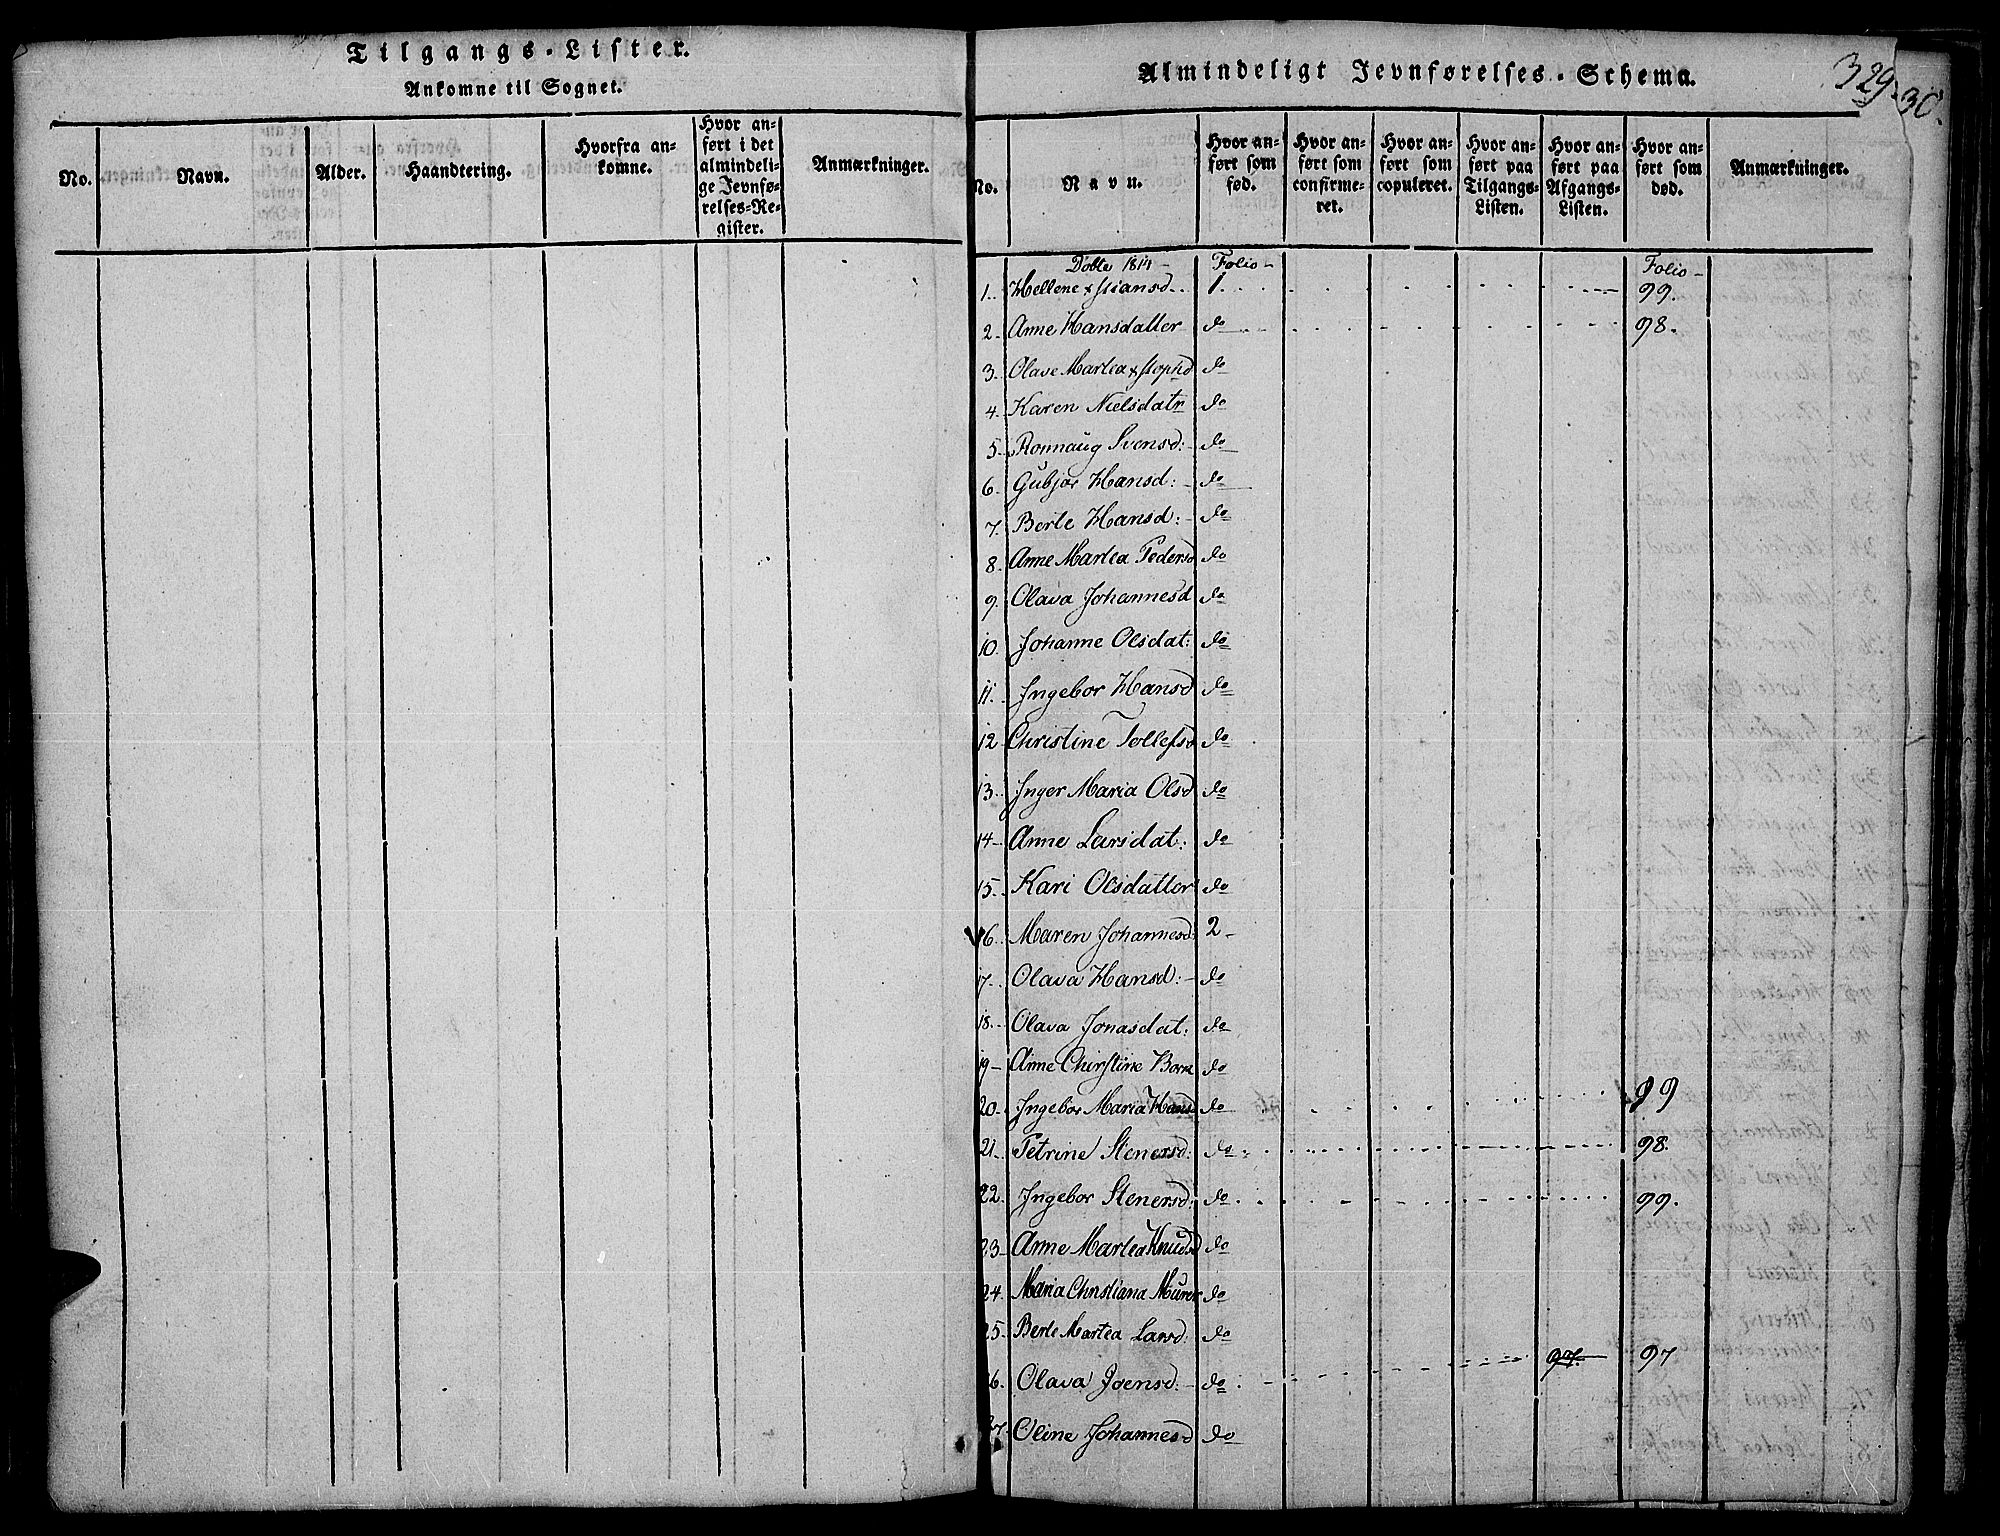 Tilgangs-Lister.
Ankomne til Sognet.
No.
Navn.
Alder.
Haandtering.
Hvorfra an-
komne.
Hvor an-
ført i det
almindeli-
ge Jevnfø-
relses-Re-
gister.
Anmærkninger.
Almindeligt Jevnførelses-Schema.
329.
30.
No.
Navn.
Hvor an-
ført som
fød.
Hvor an-
ført som
confirme-
ret.
Hvor an-
ført som
copuleret.
Hvor an-
ført paa
Tilgangs-
Listen.
Hvor an-
ført paa
Afgangs-
Listen.
Hvor an-
ført som
død.
Anmærkninger.
Døbte 1814 - Folio - Folio -
1. Hellene Xstiansd. 1. 99.
2. Anne Hansdatter do 98.
3. Olave Martea Xstophd do
4. Karen Nielsdatr do
5. Ronnaug Svensd: do
6. Gubjør Hansd: - do
7. Berte Hansd: - do
8. Anne Martea Pedersd do
9. Olava Johannesd do
10. Johanne Olsdat: do
11. Ingebor Hansd do
12 Christine Tollefsd do
13. Inger Maria Olsd do
14 - Anne Larsdat: do
15. Kari Olsdatter do
16. Maren Johannesd: 2 -
17. Olava Hansd: - do
18. Olava Jonasdat: do
19 - Anne Chirstine Born do
20. Ingebor Maria Hansd do 99
21. Petrine Stenersd: do 98.
22. Ingebor Stenersd: do 99.
23 - Anne Martea Knudsd do
24. Maria Christiana Murer do
25. Berte Martea Larsd: do
26. Olava Joensd: - do 97. 97
27. Oline Johannesd do